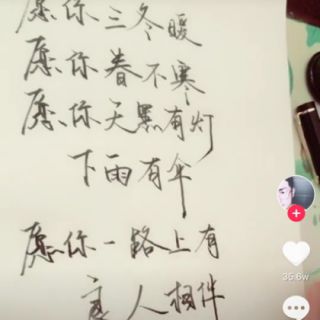 愿你三冬暖
愿你春不寒
愿你天黑有灯
下雨有伞
愿你一路上有
良人相伴
35.6w